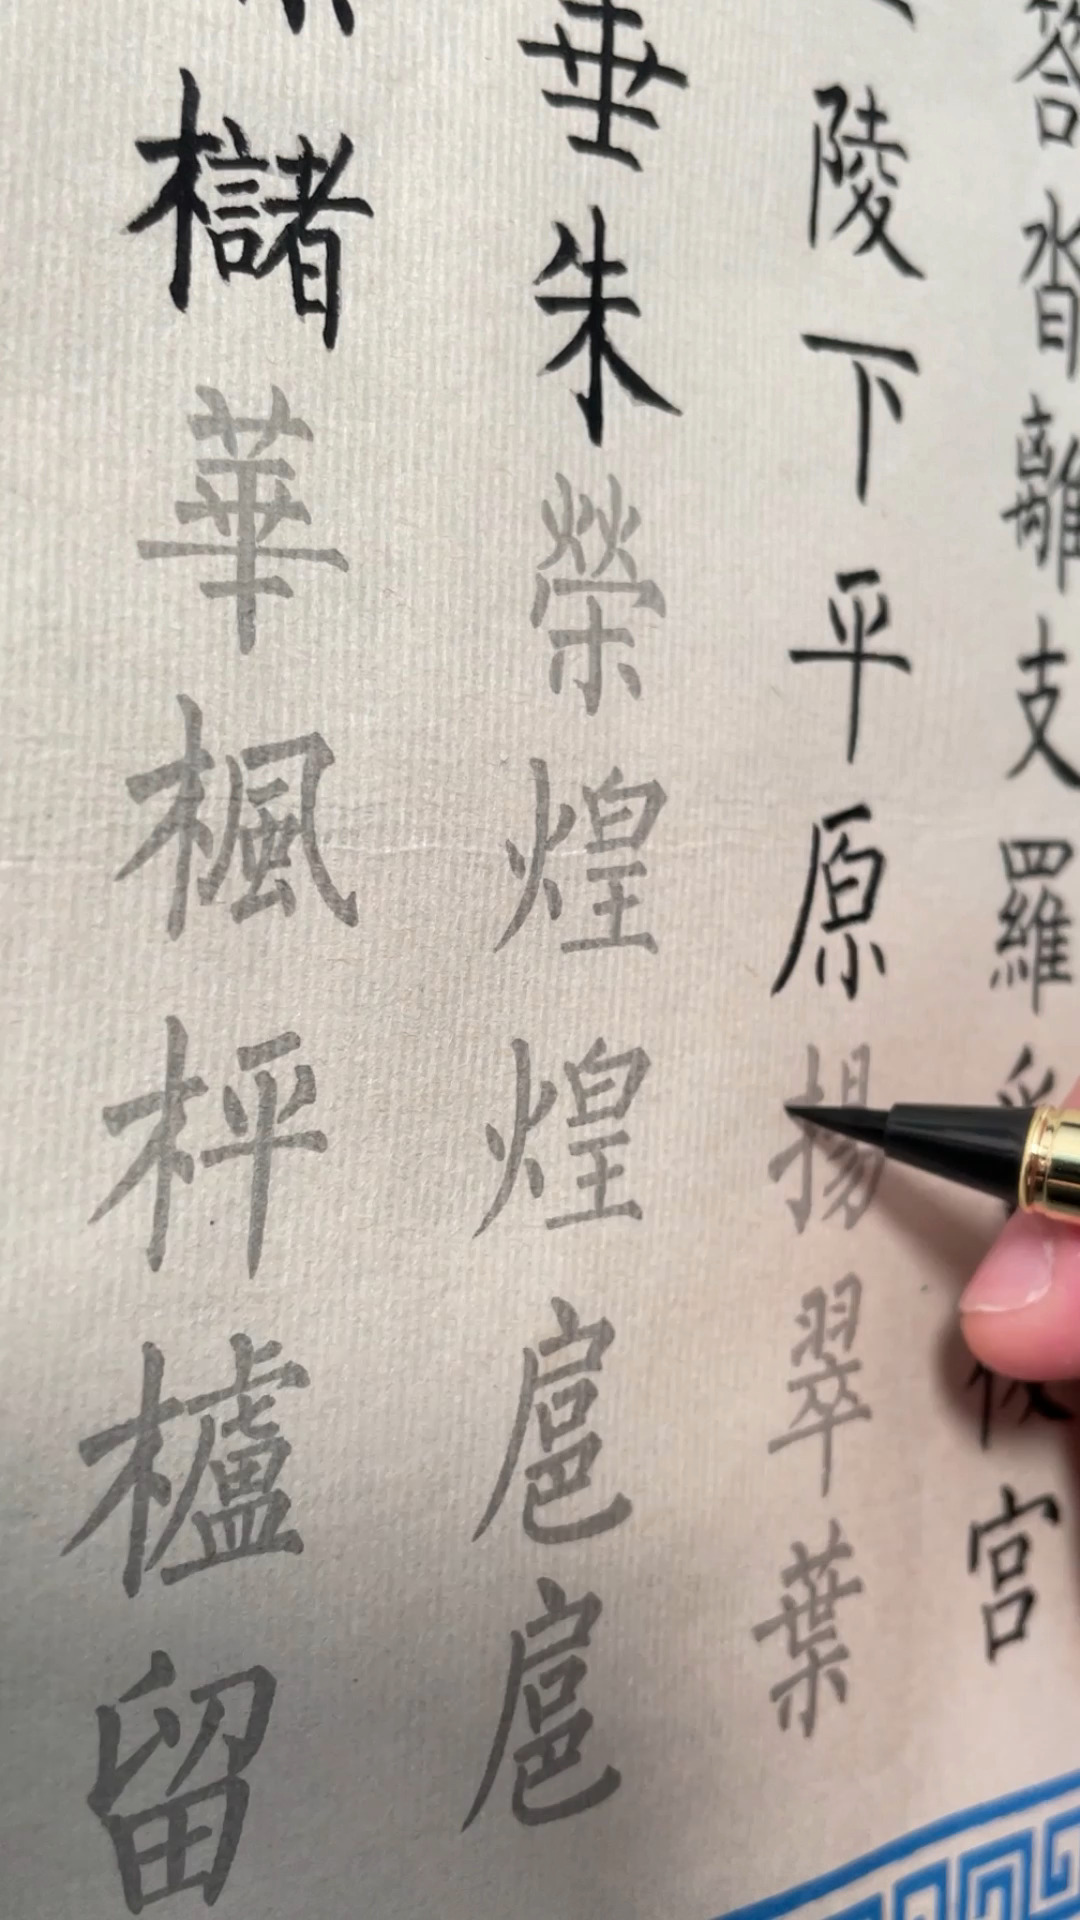 答沓離支羅宮
陵下平原揚翠葉
垂朱榮煌煌扈扈
櫧華楓枰櫨留